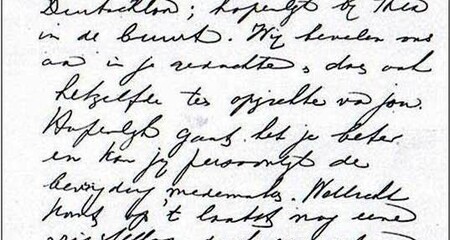 ; hopelijk bij Thea
in de buurt. Wij bevelen ons
aan in je gedachte, dog ook
hetzelfde ten opzichte van jou.
Hopelijk gaat het je beter
en kan jij persoonlijk de
bevrijding medemaken. Wellicht
komt op 't laatst nog eene